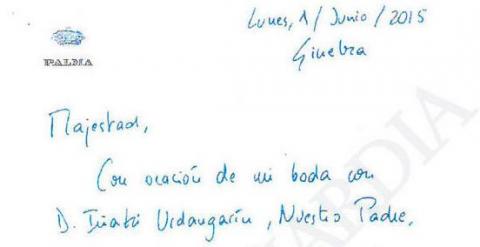 Lunes, 1/Junio/2015
Ginebra
PALMA
Majestad,
Con ocasión de mi boda con
D. Iñaki Urdangarin, Nuestro Padre,